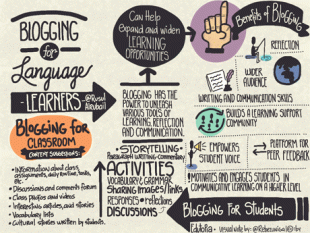 BLOGGING
for
Language
LEARNERS
BLOGGING FOR
CLASSROOM
CONTENT SUGGESTIONS:
• Discussions and comments forum
• Class photos and videos
• Vocabulary lists
• Cultural stories written by students
Can Help
Expand and widen
LEARNING
OPPORTUNITIES
BLOGGING HAS THE
POWER TO UNLEASH
VARIOUS TOOLS OF
LEARNING, REFLECTION
AND COMMUNICATION.
• STORYTELLING •
Paragraph writing • commentary
ACTIVITIES
VOCABULARY & GRAMMAR
SHARING IMAGES/links
RESPONSES • reflections
DISCUSSIONS
Benefits of Blogging
REFLECTION
WIDER
AUDIENCE
WRITING AND COMMUNICATION SKILLS
BUILDS A LEARNING SUPPORT
COMMUNITY
EMPOWERS
STUDENT VOICE
PLATFORM FOR
PEER FEEDBACK
MOTIVATES AND ENGAGES STUDENTS IN
COMMUNICATIVE LEARNING ON A HIGHER LEVEL
BLOGGING FOR STUDENTS